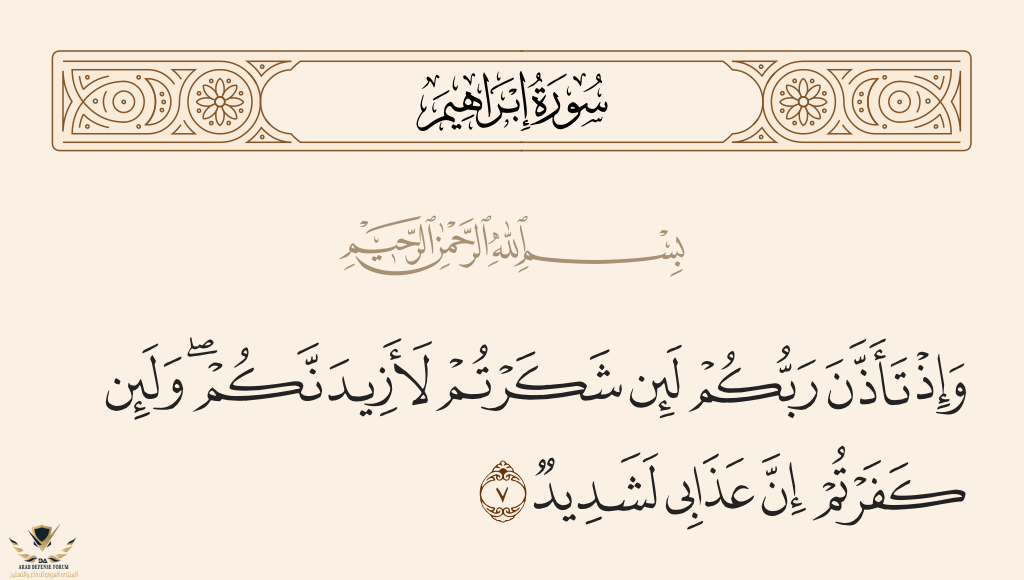 سُورَةُ إِبْرَاهِيمَ
بِسْمِ ٱللَّهِ ٱلرَّحْمَٰنِ ٱلرَّحِيمِ
وَإِذْ تَأَذَّنَ رَبُّكُمْ لَئِن شَكَرْتُمْ لَأَزِيدَنَّكُمْ ۖ وَلَئِن
كَفَرْتُمْ إِنَّ عَذَابِى لَشَدِيدٌ ٧
ARAB DEFENSE FORUM
المنتدى العربي للدفاع والتسليح